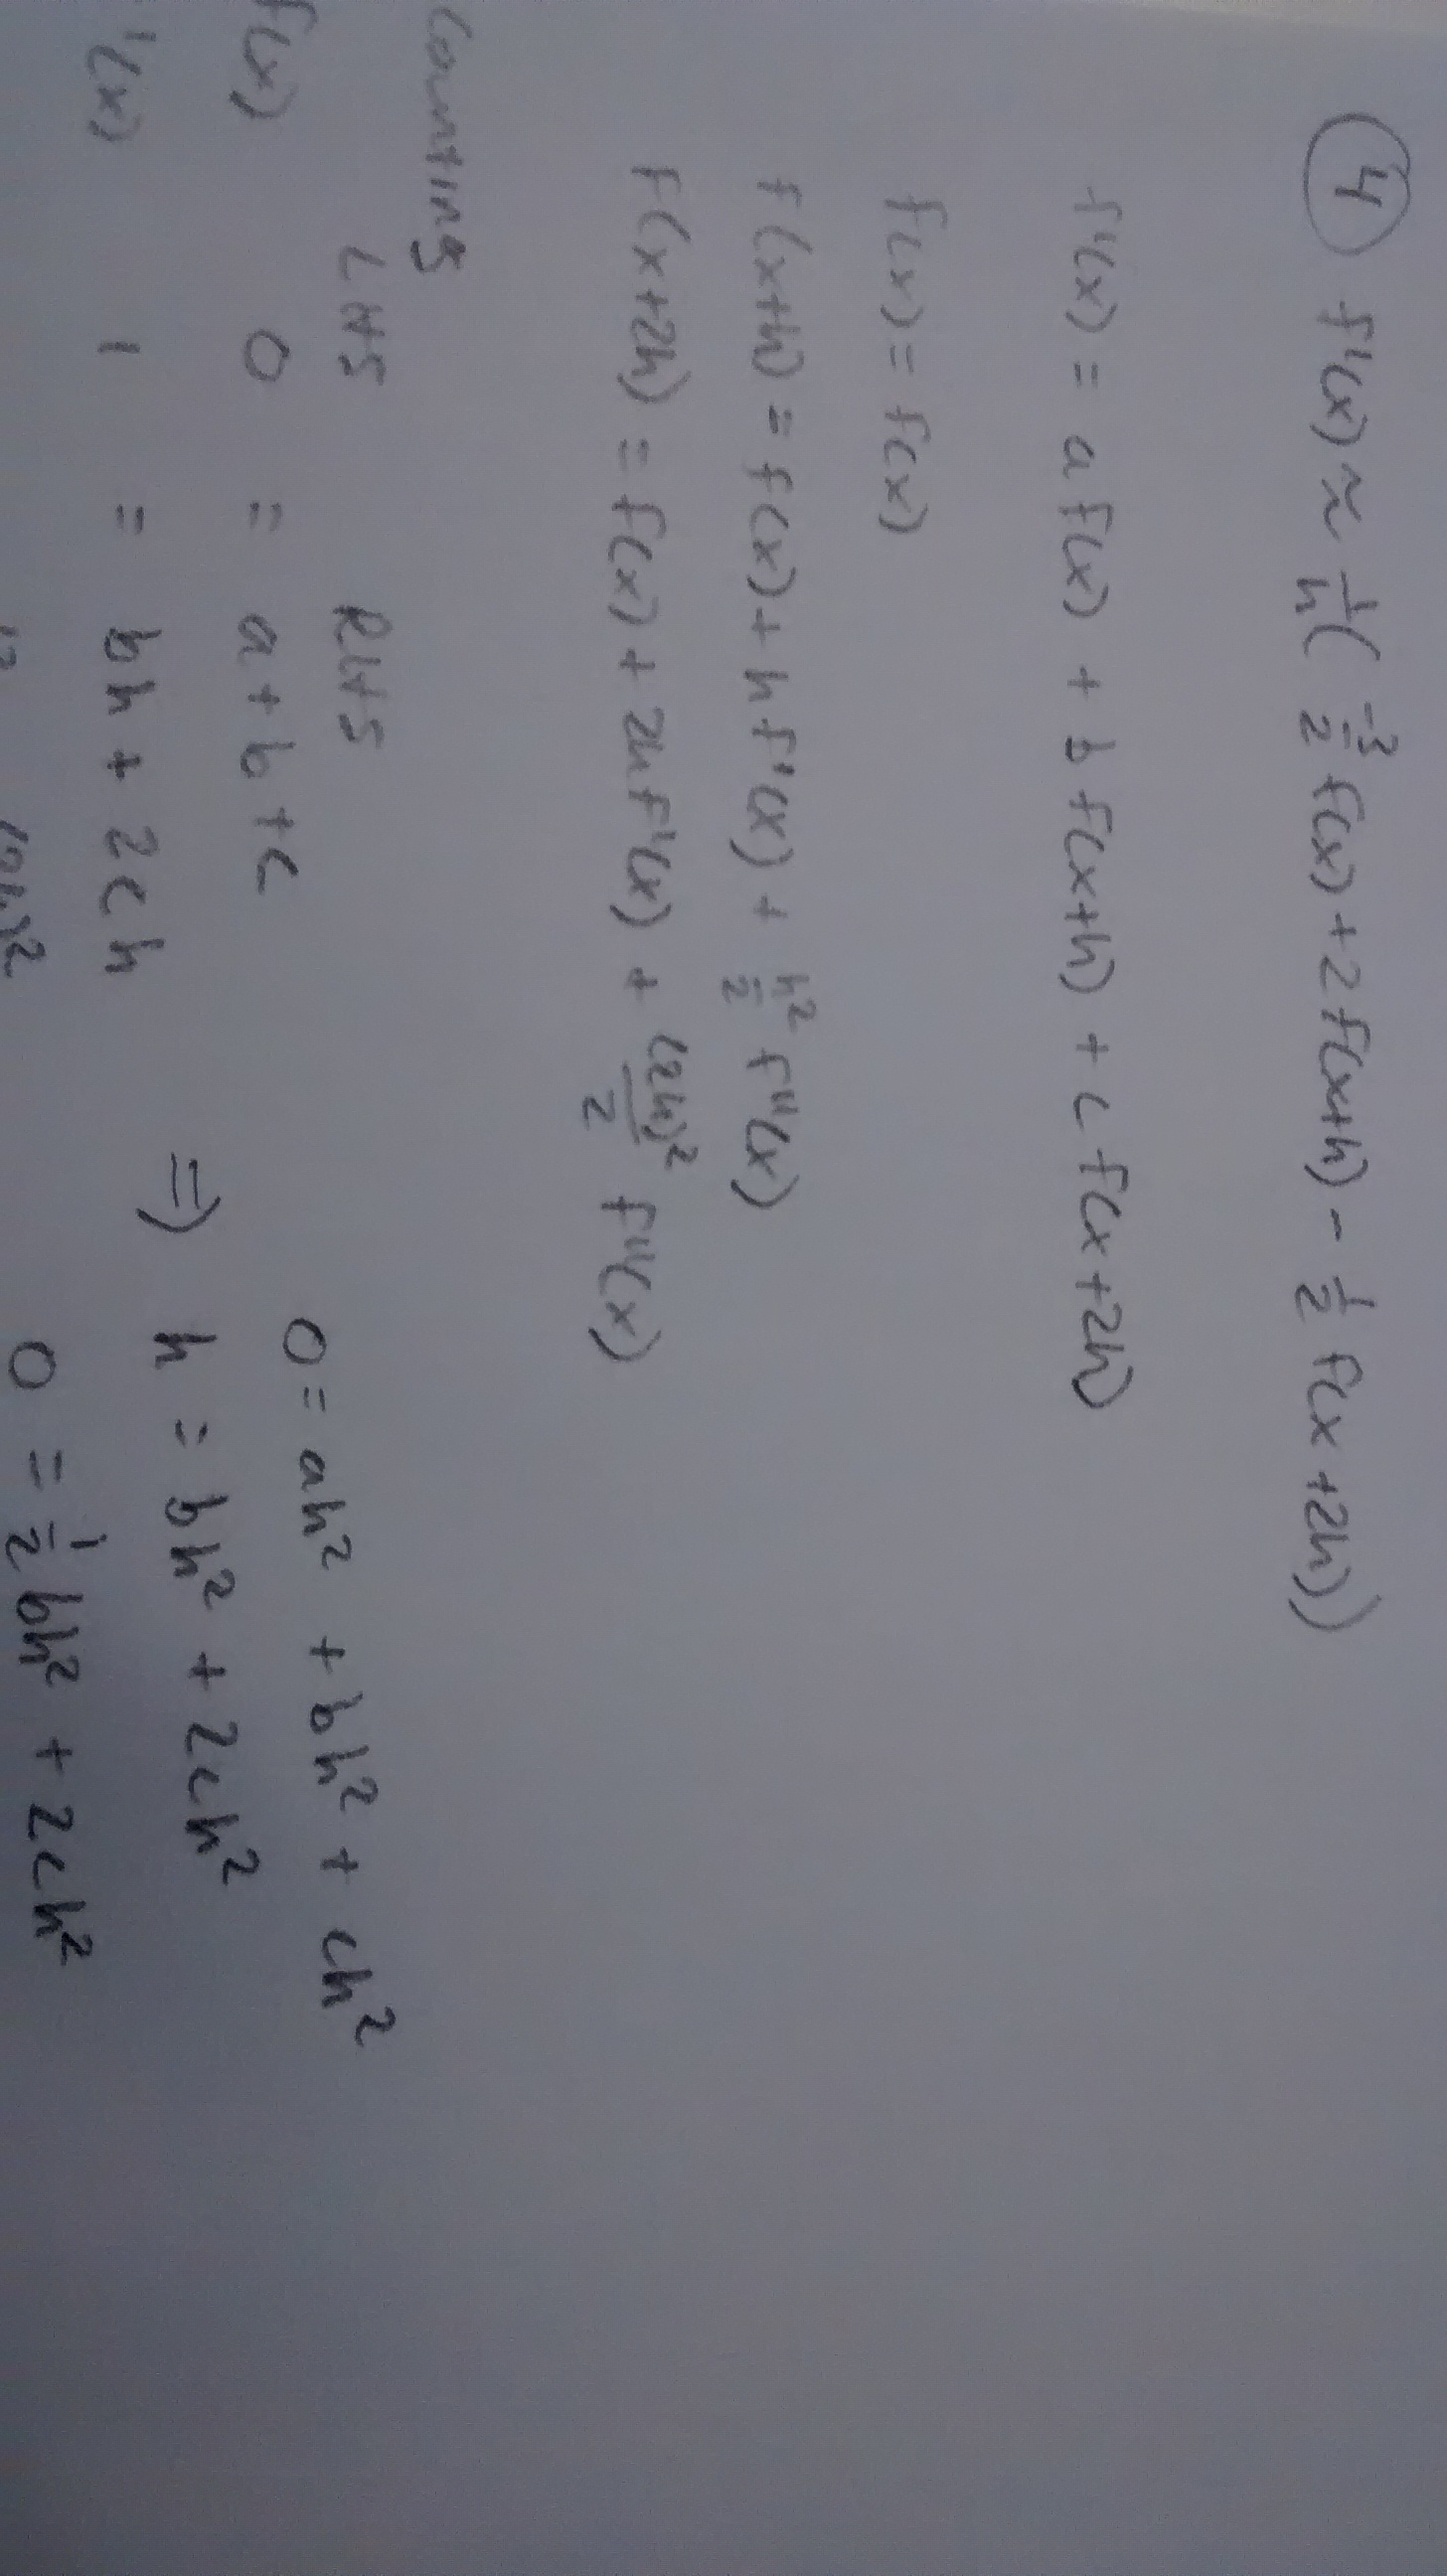 ④ f'(x) ≈ 1/h ( -3/2 f(x) + 2 f(x+h) - 1/2 f(x+2h))
f'(x) = a f(x) + b f(x+h) + c f(x+2h)
f(x) = f(x)
f(x+h) = f(x) + h f'(x) + h²/2 f''(x)
f(x+2h) = f(x) + 2h f'(x) + (2h)²/2 f''(x)
Counting
LHS RHS
f(x) 0 = a + b + c 0 = ah² + bh² + ch²
'(x) 1 = bh + 2ch ⇒ h = bh² + 2ch²
(2h)² 0 = 1/2 bh² + 2ch²